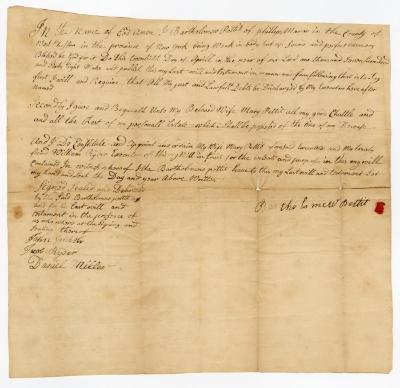 In the Name of God Amen I Bartholomew Pettit of phillips Manor in the County of
West Chester in the province of New York being Weak in body but of Sound and perfect memory
Blessed be God for it Do this twentieth Day of April in the year of our Lord one thousand Seven hundred
and Sixty Eight make and publish this my last will and testament in manner and form following that is to Say
first I will and Require that All My Just and Lawfull Debts be Discharged by My Executors here after
Named
Secondly I give and Bequeath Unto My Beloved Wife Mary Pettit all my goods Chattle and
and all the Rest of my small Estate which Shall be possesed of the time of my Decease
And I Do Constitute and Appoint and ordain My Wife Mary Pettit and My
and William Executors of this my Will in trust for the intent and purpose in this my will
Contained In witness whereof I the Bartholomew pettit have to this my last will and testament Set
my hand and Seal the Day and year Above Written
Signed Sealed and Delivered
by the Said Bartholomew pettit
as and for his last will and
testament in the presence of
us who were at the Signing and
Sealing thereof
Bartholomew Pettit
John
Jacob
Daniel Miller